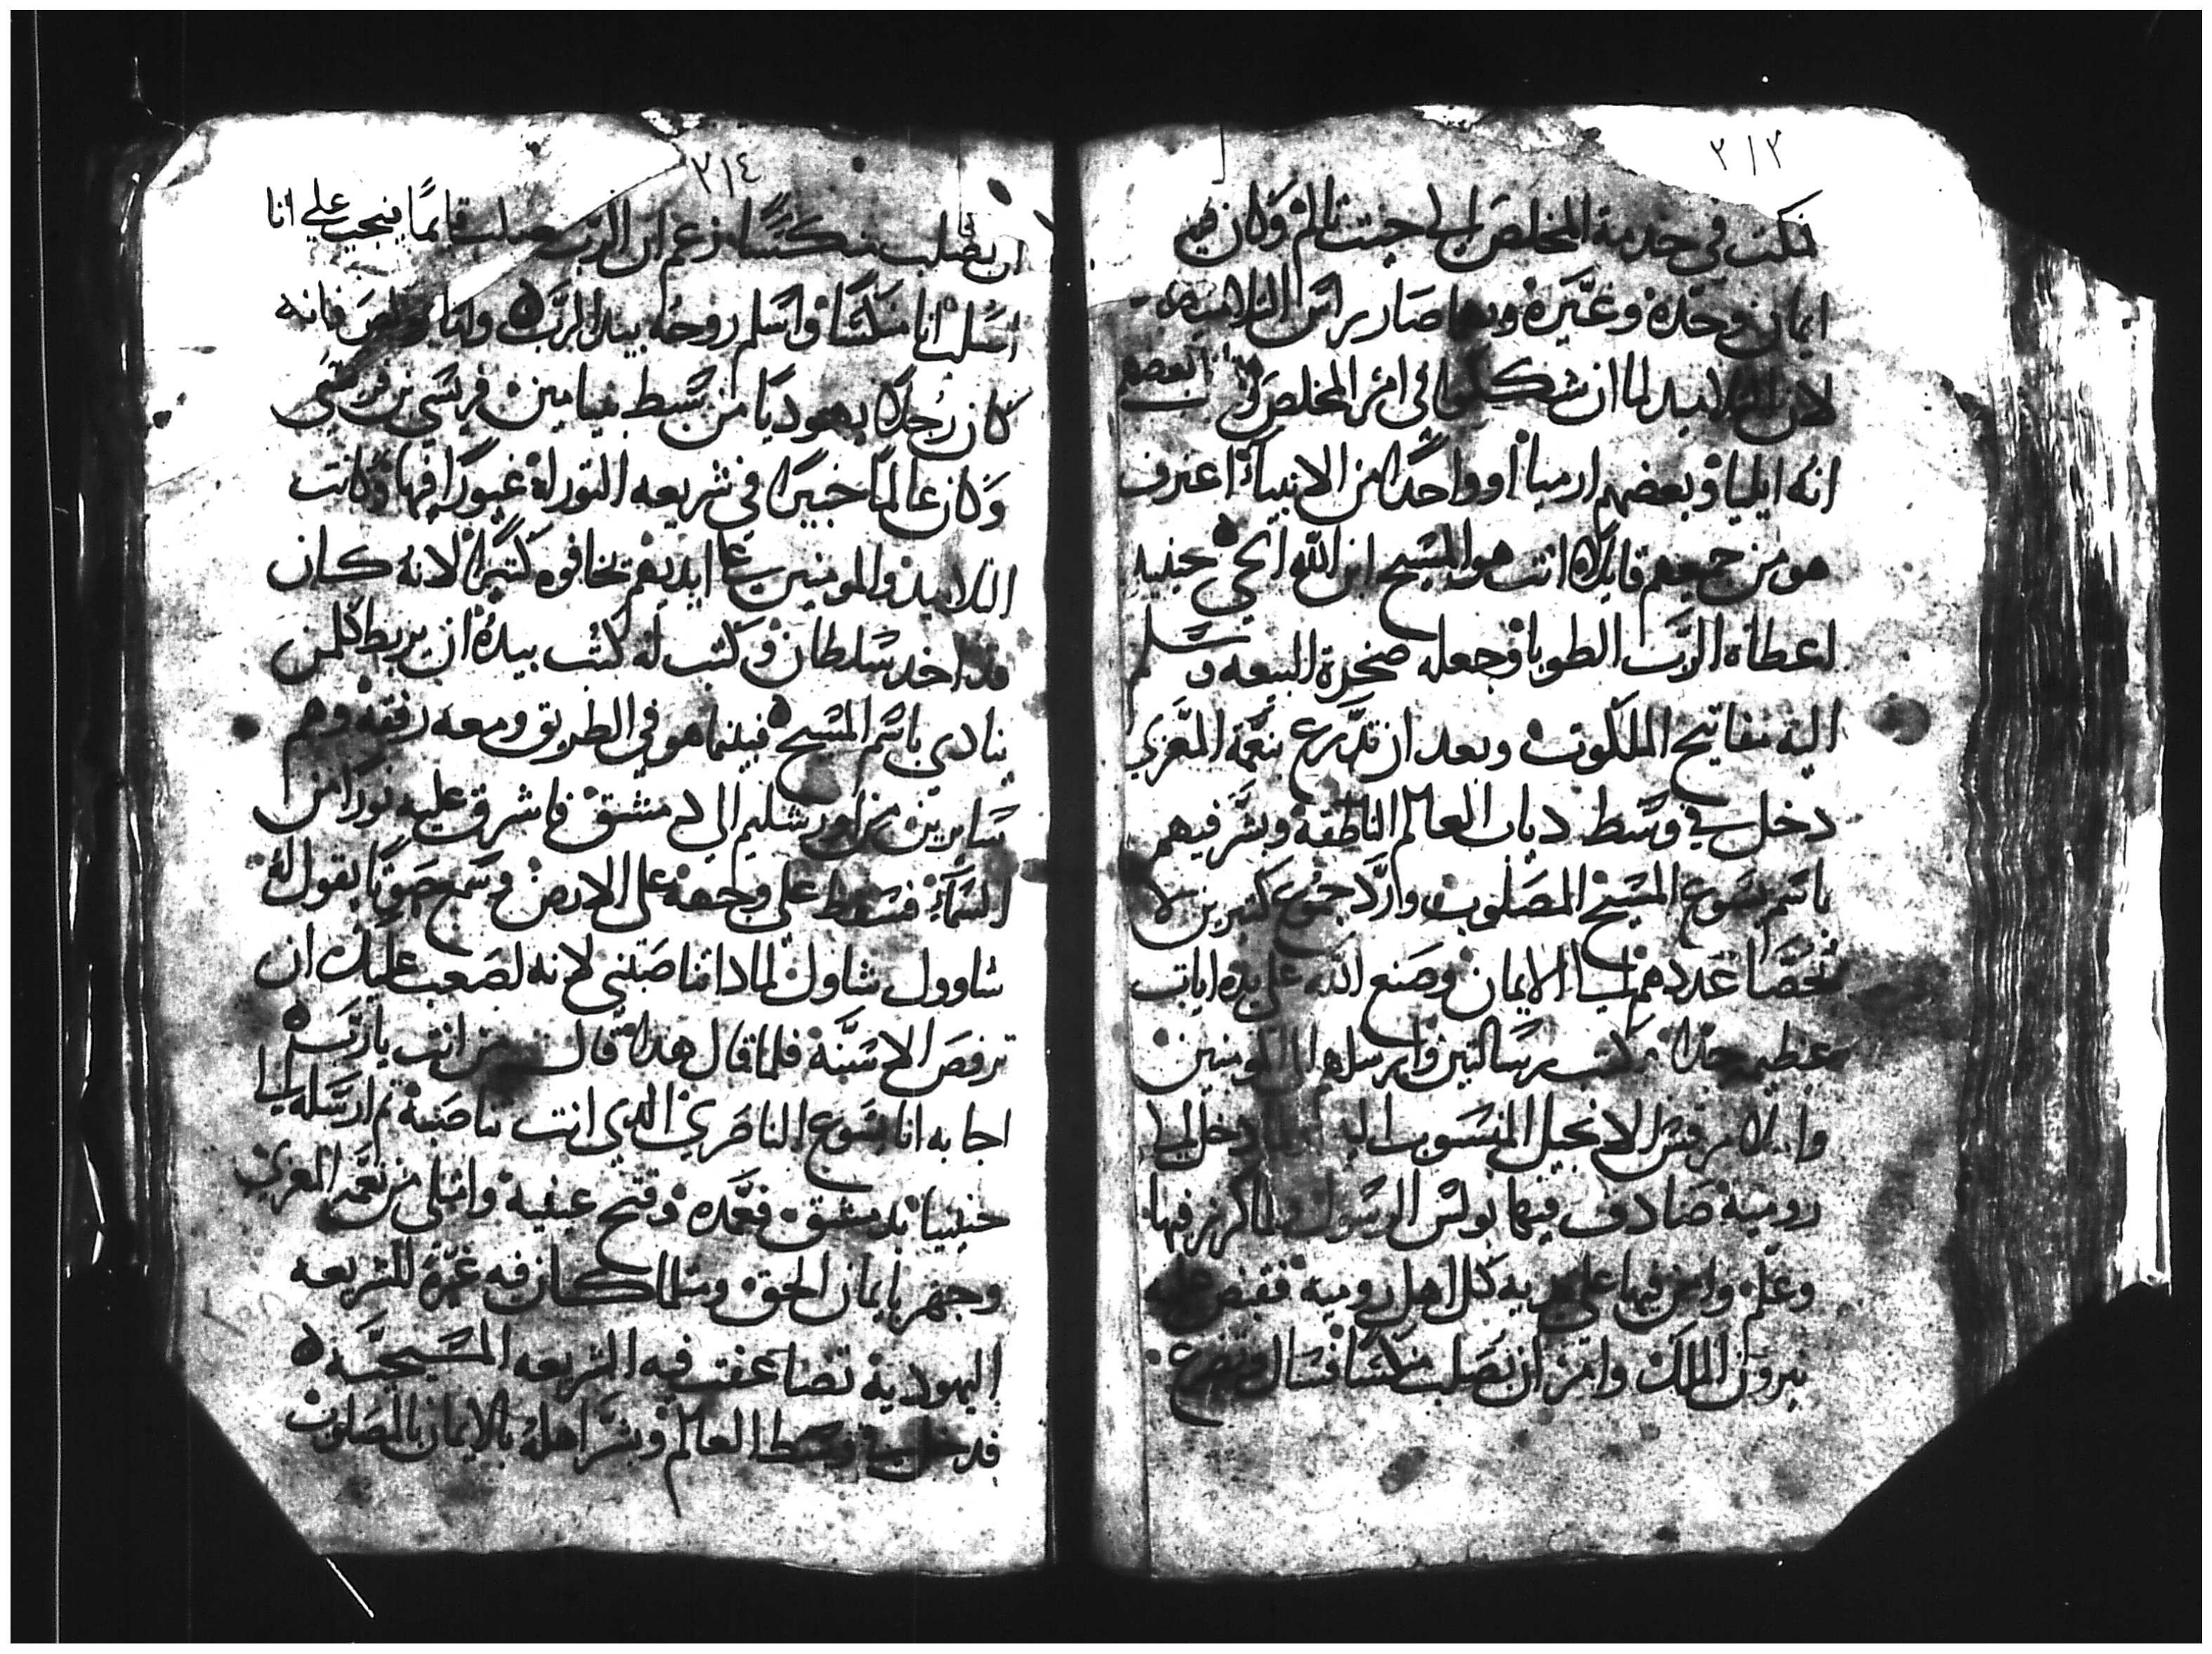 ٢١٣
فمكت في خدمة المخلص الي حيت تالم وكان فيه
ايمان وحده وغيره وبها صار راس التلاميد
لان التلاميد لما ان شكلوا في امر المخلص بعضهم
انه ايليا وبعضهم ارميا او واحدا من الانبياء اعترف
هو من جميعهم قايلا انت هو المسيح ابن الله الحي حينيد
اعطاه الرب الطوبا وجعله صخرة البيعه وسلم
اليه مفاتيح الملكوت وبعد ان تدرع بنعمة المعزي
دخل في وسط دياب العالم الناطقة وبشر فيهم
باسم يسوع المسيح المصلوب وارد جموع كتيرين لا
تحصا عددهم الي الايمان وصنع الله علي يده ايات
عظيمه جدا وكتب رسالتين وارسلها الي المومنين
واملا مرقس الانجيل المنسوب اليه ولما دخل الي
رومية صادف فيها بولس الرسول ولما كرز فيها
وعلم وامن فيها علي يديه كل اهل رومية فقبض عليه
نيرون الملك وامر ان يصلب منكسا فسال وتضرع
٢١٤
ان يصلب منكسا زعم ان الرب صلب قايما فيجب علي انا
اصلب انا منكسا واسلم روحه بيد الرب واما بولص فانه
كان رجلا يهوديا من سبط بنيامين فريسي بن فريسي
وكان عالما خبيرا في شريعه التوراه غيورا فيها وكانت
التلاميد والمومنين علي ايديهم تخافوه كتيرا لانه كان
قد اخد سلطان وكتب له كتب بيده ان يربط كلمن
ينادي باسم المسيح فبينما هو في الطريق ومعه رفقه وهم
سايرين من اورشليم الي دمشق فاشرق عليه نورا من
السماء فسقط علي وجهه علي الارض وسمع صوتا يقول له
شاوول شاول لمادا تناصبني لانه لصعب عليك ان
ترفص الاسنة فلما قال هدا قال من انت يارب
اجابه انا يسوع الناصري الدي انت تناصبة تم ارسله الي
حنينيا بدمشق فعمده وفتح عينيه وامتلي من نعمة المعزي
وجهر بايمان الحق ومتلما كان فيه غيرة للشريعه
اليهودية تضاعفت فيه الشريعه المسيحية
فدخل في وسط العالم وبشر اهله بالايمان بالمصلوب